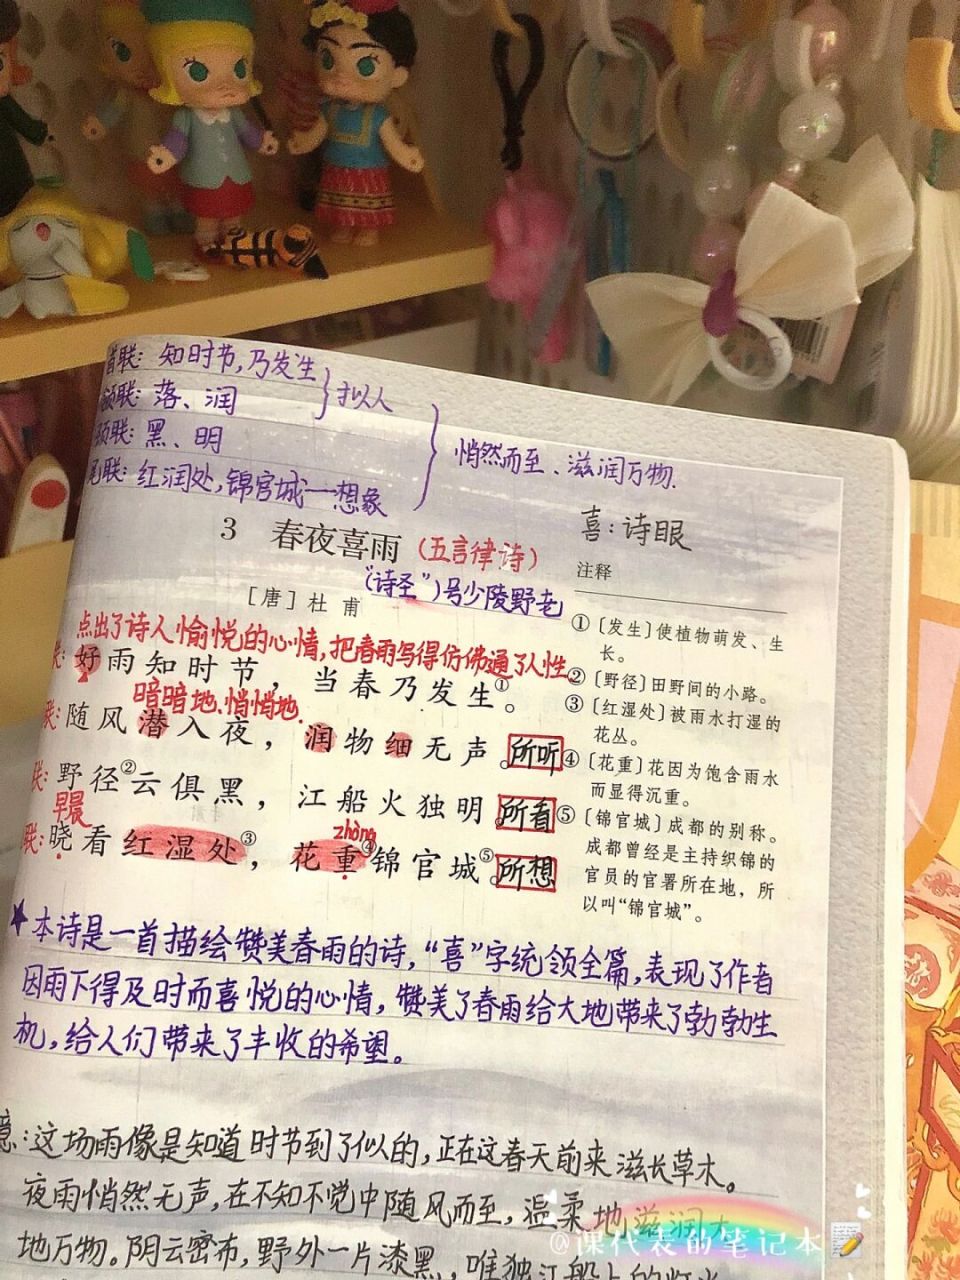 首联：知时节,乃发生
颔联：落、润
}拟人
颈联：黑、明
尾联：红润处,锦官城—想象
悄然而至、滋润万物.
3 春夜喜雨(五言律诗)
喜：诗眼
[唐]杜甫
("诗圣")号少陵野老
注释
点出了诗人愉悦的心情,把春雨写得仿佛通了人性。
联：好雨知时节，当春乃发生①。
暗暗地、悄悄地.
联：随风潜入夜，润物细无声。所听
联：野径②云俱黑，江船火独明。所看
早晨
zhòng
联：晓看红湿处③，花重④锦官城⑤。所想
①〔发生〕使植物萌发、生
长。
②〔野径〕田野间的小路。
③〔红湿处〕被雨水打湿的
花丛。
④〔花重〕花因为饱含雨水
而显得沉重。
⑤〔锦官城〕成都的别称。
成都曾经是主持织锦的
官员的官署所在地，所
以叫“锦官城”。
★本诗是一首描绘赞美春雨的诗,“喜”字统领全篇,表现了作者
因雨下得及时而喜悦的心情,赞美了春雨给大地带来了勃勃生
机,给人们带来了丰收的希望。
意:这场雨像是知道时节到了似的,正在这春天前来滋长草木。
夜雨悄然无声,在不知不觉中随风而至,温柔地滋润大
地万物。阴云密布,野外一片漆黑,唯独江船上的灯火
@课代表的笔记本